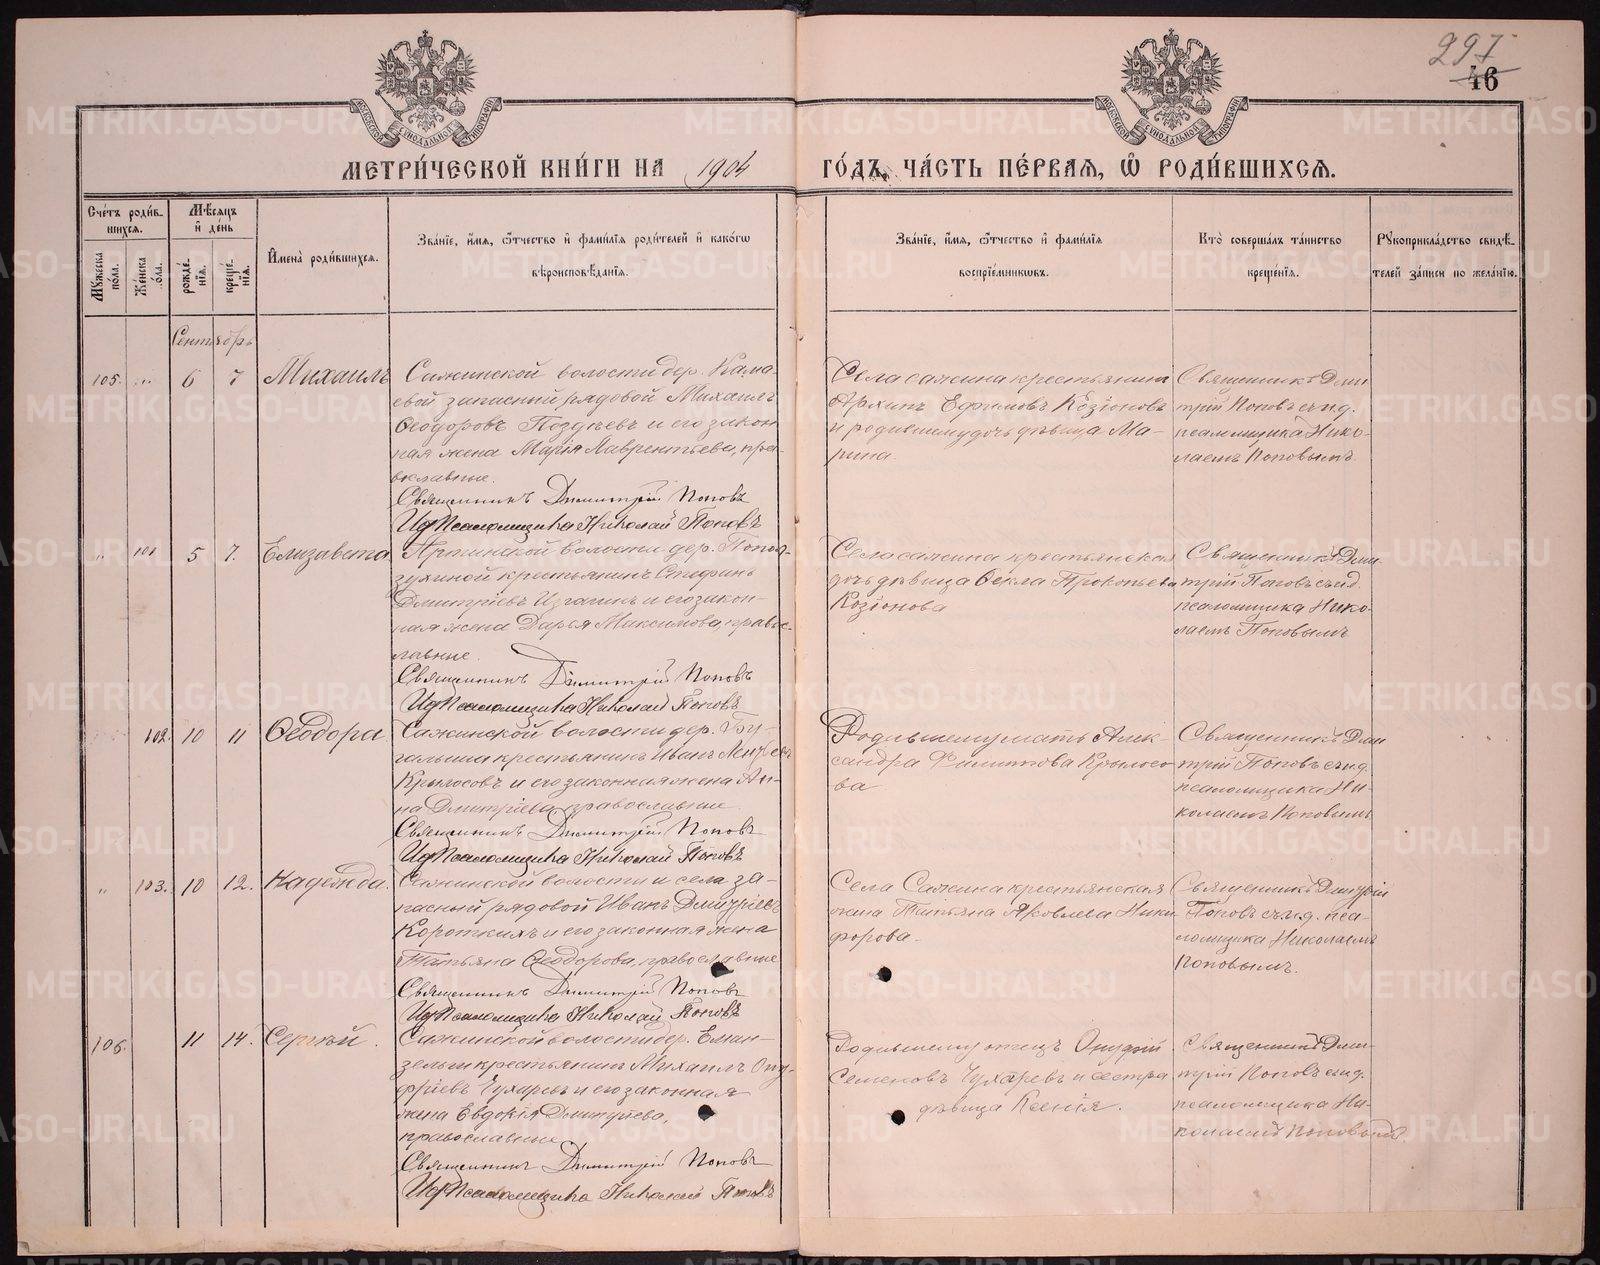 297
46
МОСКОВСКОЙ СѴНОДАЛЬНОЙ ТИПОГРАФІИ
МОСКОВСКОЙ СѴНОДАЛЬНОЙ ТИПОГРАФІИ
МЕТРИ́ЧЕСКОЙ КНИ́ГИ НА 1904 ГО́ДЪ, ЧА́СТЬ ПЕ́РВАЯ, Ѡ РОДИ́ВШИХСЯ.
Сче́тъ роди́в-
шихся.
Мѣ́сяцъ
и҆ де́нь
Мꙋ́жеска
по́ла.
Же́нска
по́ла.
рожде́-
нїѧ.
креще́-
нїѧ.
И҆мена̀ роди́вшихсѧ.
Зва́нїе, и҆́мѧ, ѻ҆́тчество и҆ фами́лїѧ роди́телей и҆ како́гѡ
вѣроисповѣ́данїѧ.
Зва́нїе, и҆́мѧ, ѻ҆́тчество и҆ фами́лїѧ
воспрїе́мникѡвъ.
Кто̀ соверша́лъ та́инство
креще́нїѧ.
Рꙋкоприкла́дство свидѣ́-
телей за́писи по жела́нїю.
Сентябрь
105. 6 7 Михаилъ
Сажинской волости дер. Кама-
евой запасный рядовой Михаилъ
Ѳеодоровъ Поздѣевъ и его закон
ная жена Марія Лаврентьева, пра-
вославные.
Священникъ Димитрій Поповъ
Ид Псаломщика Николай Поповъ
Села Сажина крестьянинъ
Архипъ Ефимовъ Козіоновъ
и родившему дочь дѣвица Ма-
рина.
Священникъ Дми
трій Поповъ съ и.д.
псаломщика Нико-
лаемъ Поповымъ.
" 101 5 7. Елизавета
Артинской волости дер. Попол-
зухиной крестьянинъ Стефанъ
Дмитріевъ Изгагинъ и его закон-
ная жена Дарья Максимова, право-
славные.
Священникъ Димитрій Поповъ
Ид Псаломщика Николай Поповъ
Села Сажина крестьянская
дочь дѣвица Ѳекла Прокопьева
Козіонова
Священникъ Дми
трій Поповъ съ и.д.
псаломщика Нико-
лаемъ Поповымъ
102. 10 11 Ѳеодора
Сажинской волости дер. Бу-
галыша крестьянинъ Иванъ
Крылосовъ и его законная жена Ан-
на Дмитріева, православные.
Священникъ Димитрій Поповъ
Ид Псаломщика Николай Поповъ
Родившему мать Алек-
сандра Филиппова Крылосо
ва
Священникъ Дми
трій Поповъ съ и.д.
псаломщика Ни-
колаемъ Поповымъ
" 103. 10 12. Надежда.
Сажинской волости и села за-
пасный рядовой Иванъ Дмитріевъ
Короткихъ и его законная жена
Татьяна Ѳеодорова, православные
Священникъ Димитрій Поповъ
Ид Псаломщика Николай Поповъ
Села Сажина крестьянская
жена Татьяна Яковлева Ники
форова.
Священникъ Димитрій
Поповъ съ и.д. пса-
ломщика Николаемъ
Поповымъ.
106. 11 14. Сергѣй.
Сажинской волости дер. Еман-
зельги крестьянинъ Михаилъ Ону-
фріевъ Чухаревъ и его законная
жена Евдокія Дмитріева,
православные
Священникъ Димитрій Поповъ
Ид Псаломщика Николай Поповъ
Родившему отецъ Онуфрій
Семеновъ Чухаревъ и сестра
дѣвица Ксенія.
Священникъ Дми-
трій Поповъ съ и.д.
псаломщика Ни-
колаемъ Поповымъ.